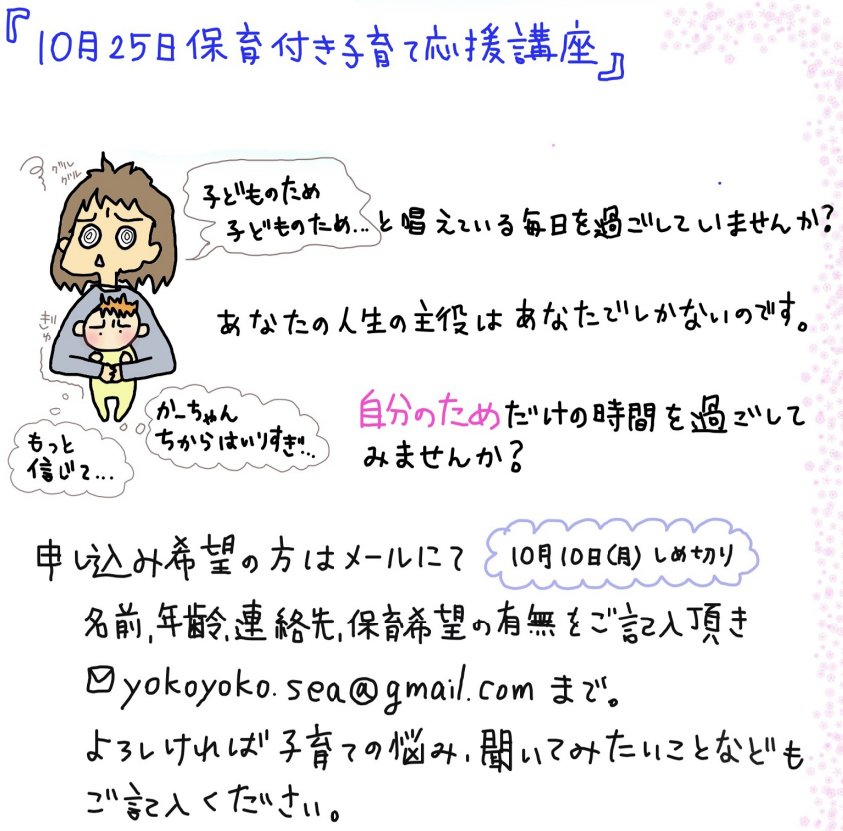 『10月25日保育付き子育て応援講座』
グルル
グルル
子どものため
子どものため…と唱えている毎日を過ごしていませんか?
あなたの人生の主役はあなたでしかないのです。
ぎゅ
かーちゃん
ちからはいりすぎ…
もっと
信じて…
自分のためだけの時間を過ごして
みませんか?
申し込み希望の方はメールにて
10月10日(月)しめ切り
名前,年齢,連絡先,保育希望の有無をご記入頂き
yokoyoko.sea@gmail.comまで。
よろしければ子育ての悩み、聞いてみたいことなども
ご記入ください。